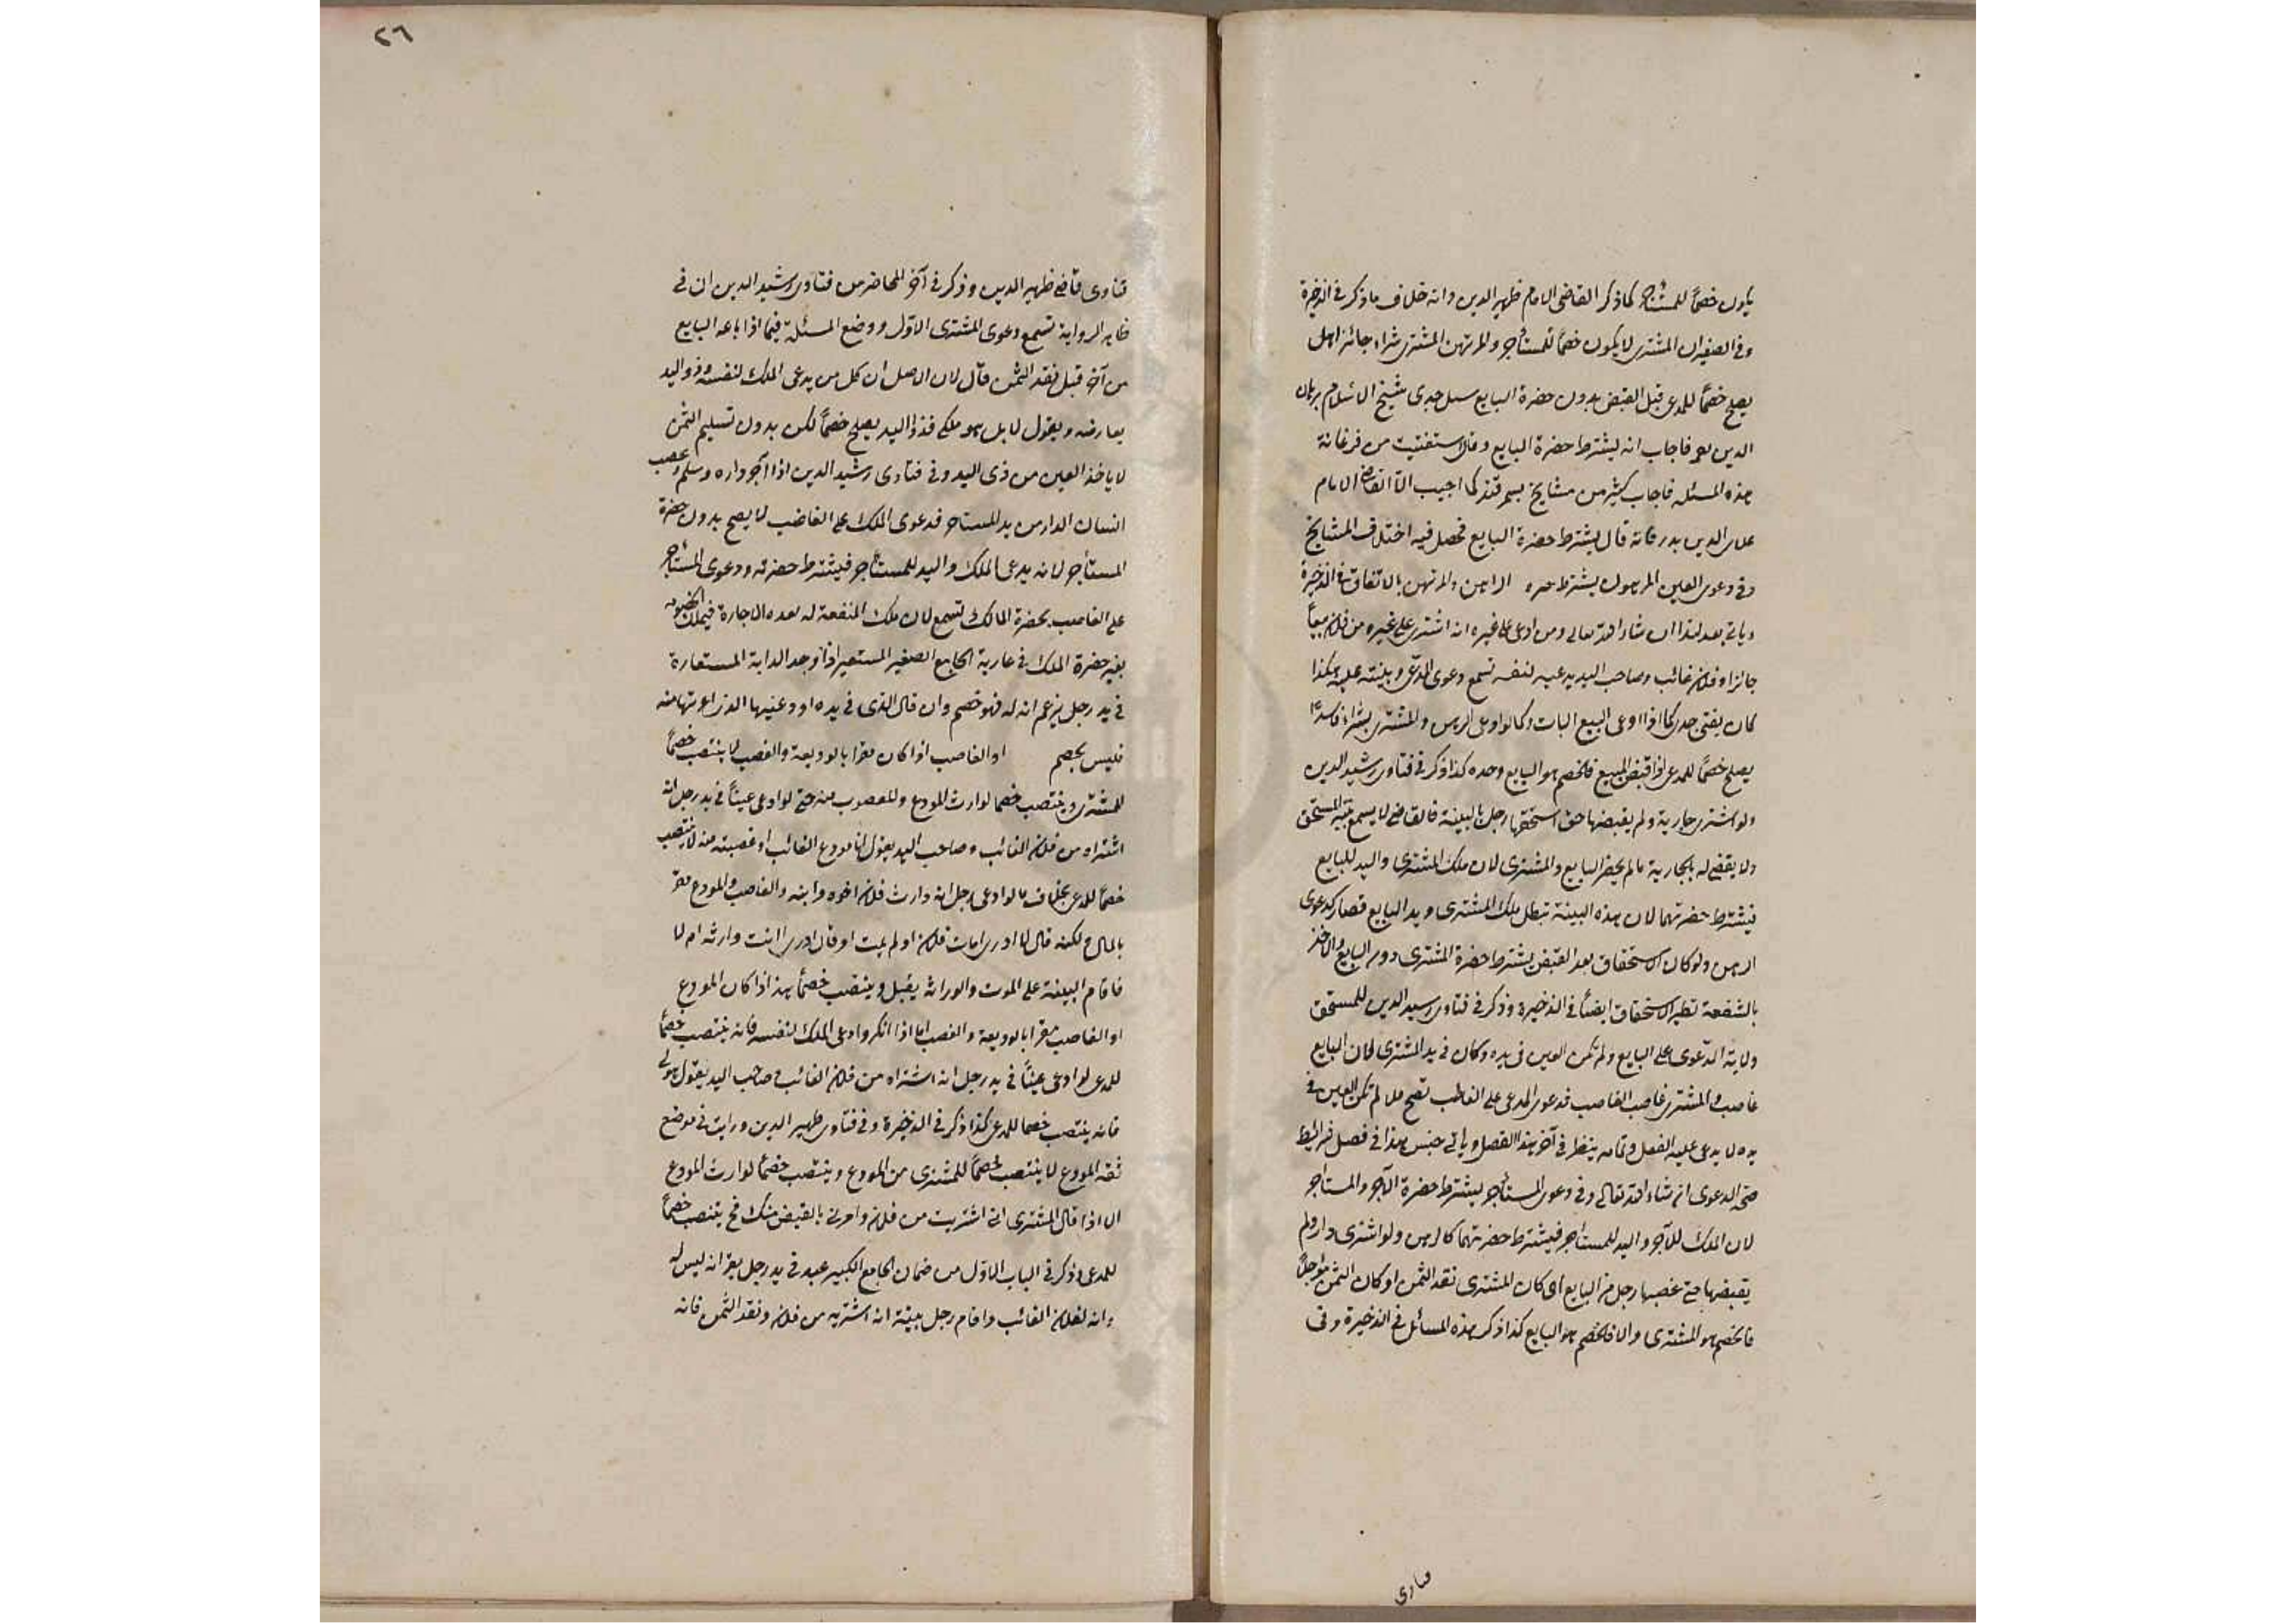 يكون خصماً للمستأجر كما ذكر القاضى الامام ظهير الدين وانه خلاف ما ذكر فى الذخيرة
وفى الصغير ان المشترى لا يكون خصماً للمستأجر والمرتهن المشترى شراء جائزا هل
يصلح خصماً للمدعى قبل القبض بدون حضرة البايع سئل جدى شيخ الاسلام برهان
الدين فاجاب انه يشترط حضرة البايع وقد استفتيت من فرغانة
هذه المسئلة فاجاب كثير من مشايخ سمرقند كما اجيب الا القاضى الامام
علاء الدين بدر فانه قال يشترط حضرة البايع فحصل فيه اختلاف المشايخ
وفى دعوى العين المرهون يشترط الراهن والمرتهن بالاتفاق فى الذخيرة
وياتى بعد هذا ان شاء الله تعالى ومن ادعى على غيره انه اشترى من فلان بيعاً
جائزا وفلان غائب وصاحب اليد يدعيه لنفسه تسمع دعوى المدعى وبينته عليه هكذا
كان يفتى جدى كما اذا ادعى البيع البات وكما لو ادعى الرهن والمشترى بشراء فاسداً
يصلح خصماً للمدعى اذا قبض المبيع فالخصم هو البايع وحده كذا ذكر فى فتاوى رشيد الدين
ولو اشترى جارية ولم يقبضها حتى استحقها رجل بالبينة فالقاضى لا يسمع بينة المستحق
ولا يقضى له بالجارية ما لم يحضر البايع والمشترى لان ملك المشترى واليد للبايع
فيشترط حضرتهما لان بهذه البينة تبطل ملك المشترى ويد البايع فصار كدعوى
الرهن ولو كان الاستحقاق بعد القبض يشترط حضرة المشترى دون البايع والاخذ
بالشفعة نظير الاستحقاق ايضاً فى الذخيرة وذكر فى فتاوى رشيد الدين للمستحق
ولاية الدعوى على البايع ولم تكن العين فى يده وكان فى يد المشترى لان البايع
غاصب والمشترى غاصب الغاصب فدعوى المدعى على الغاصب تصح ما لم تكن العين فى
يده لا يدعى عليه الفعل وتمامه ينظر فى آخر هذا الفصل وياتى جنس هذا فى فصل شرائط
صحة الدعوى ان شاء الله تعالى وفى دعوى المستأجر يشترط حضرة الآجر والمستاجر
لان الملك للآجر واليد للمستاجر فيشترط حضرتهما كالرهن ولو اشترى دارا ولم
يقبضها حتى غصبها رجل من البايع ان كان المشترى نقد الثمن او كان الثمن مؤجلاً
فالخصم هو المشترى والا فالخصم هو البايع كذا ذكر هذه المسائل فى الذخيرة وفى
فتاوى
٢٦
فتاوى قاضى ظهير الدين وذكر فى آخر المحاضر من فتاوى رشيد الدين ان فى
ظاهر الرواية تسمع دعوى المشترى الاول ووضع المسئلة فيما اذا باعه البايع
من آخر قبل نقد الثمن قال لان الاصل ان كل من يدعى الملك لنفسه وذو اليد
يعارضه ويقول لا بل هو ملكى فذو اليد يصلح خصماً لكن بدون تسليم الثمن
لا ياخذ العين من ذى اليد وفى فتاوى رشيد الدين اذا آجر داره وسلم وغصب
انسان الدار من يد المستاجر فدعوى الملك على الغاصب لا يصح بدون حضرة
المستأجر لانه يدعى الملك واليد للمستأجر فيشترط حضرته ودعوى المستأجر
على الغاصب بحضرة المالك تسمع لان ملك المنفعة له بعده الاجارة فيملك الخصومة
بغير حضرة الملك فى عارية الجامع الصغير المستعير اذا وجد الدابة المستعارة
فى يد رجل يزعم انه له فهو خصم وان قال الذى فى يده اودعنيها الذى اعرتها منه
فليس بخصم او الغاصب اذا كان مقرا بالوديعة والغصب لا ينتصب خصماً
للمشترى وينتصب خصما لوارث المودع والمغصوب منه حتى لو ادعى عيناً فى يد رجل انه
اشتراه من فلان الغائب وصاحب اليد يقول انا مودع الغائب او غصبته منه لا ينتصب
خصماً للمدعى بخلاف ما لو ادعى رجل انه وارث فلان اخوه وابنه والغاصب والمودع مقر
بالمال ولكنه قال لا ادرى امات فلان او لم يمت او قال ادرى انت وارثه ام لا
فاقام البينة على الموت والوراثة يقبل وينتصب خصماً هذا اذا كان المودع
او الغاصب مقرا بالوديعة والغصب اما اذا انكر وادعى الملك لنفسه فانه ينتصب خصماً
للمدعى لو ادعى عيناً فى يد رجل انه اشتراه من فلان الغائب وصاحب اليد يقول هو لى
فانه ينتصب خصما للمدعى كذا ذكر فى الذخيرة وفى فتاوى ظهير الدين ورايت فى موضع
ثقة المودع لا ينتصب خصماً للمشترى من المودع وينتصب خصماً لوارث المودع
الا اذا قال المشترى انى اشتريت من فلان وامرنى بالقبض منك فح ينتصب خصماً
للمدعى وذكر فى الباب الاول من ضمان الجامع الكبير عبد فى يد رجل يقر انه ليس له
وانه لفلان الغائب واقام رجل بينة انه اشتريه من فلان ونقد الثمن فانه